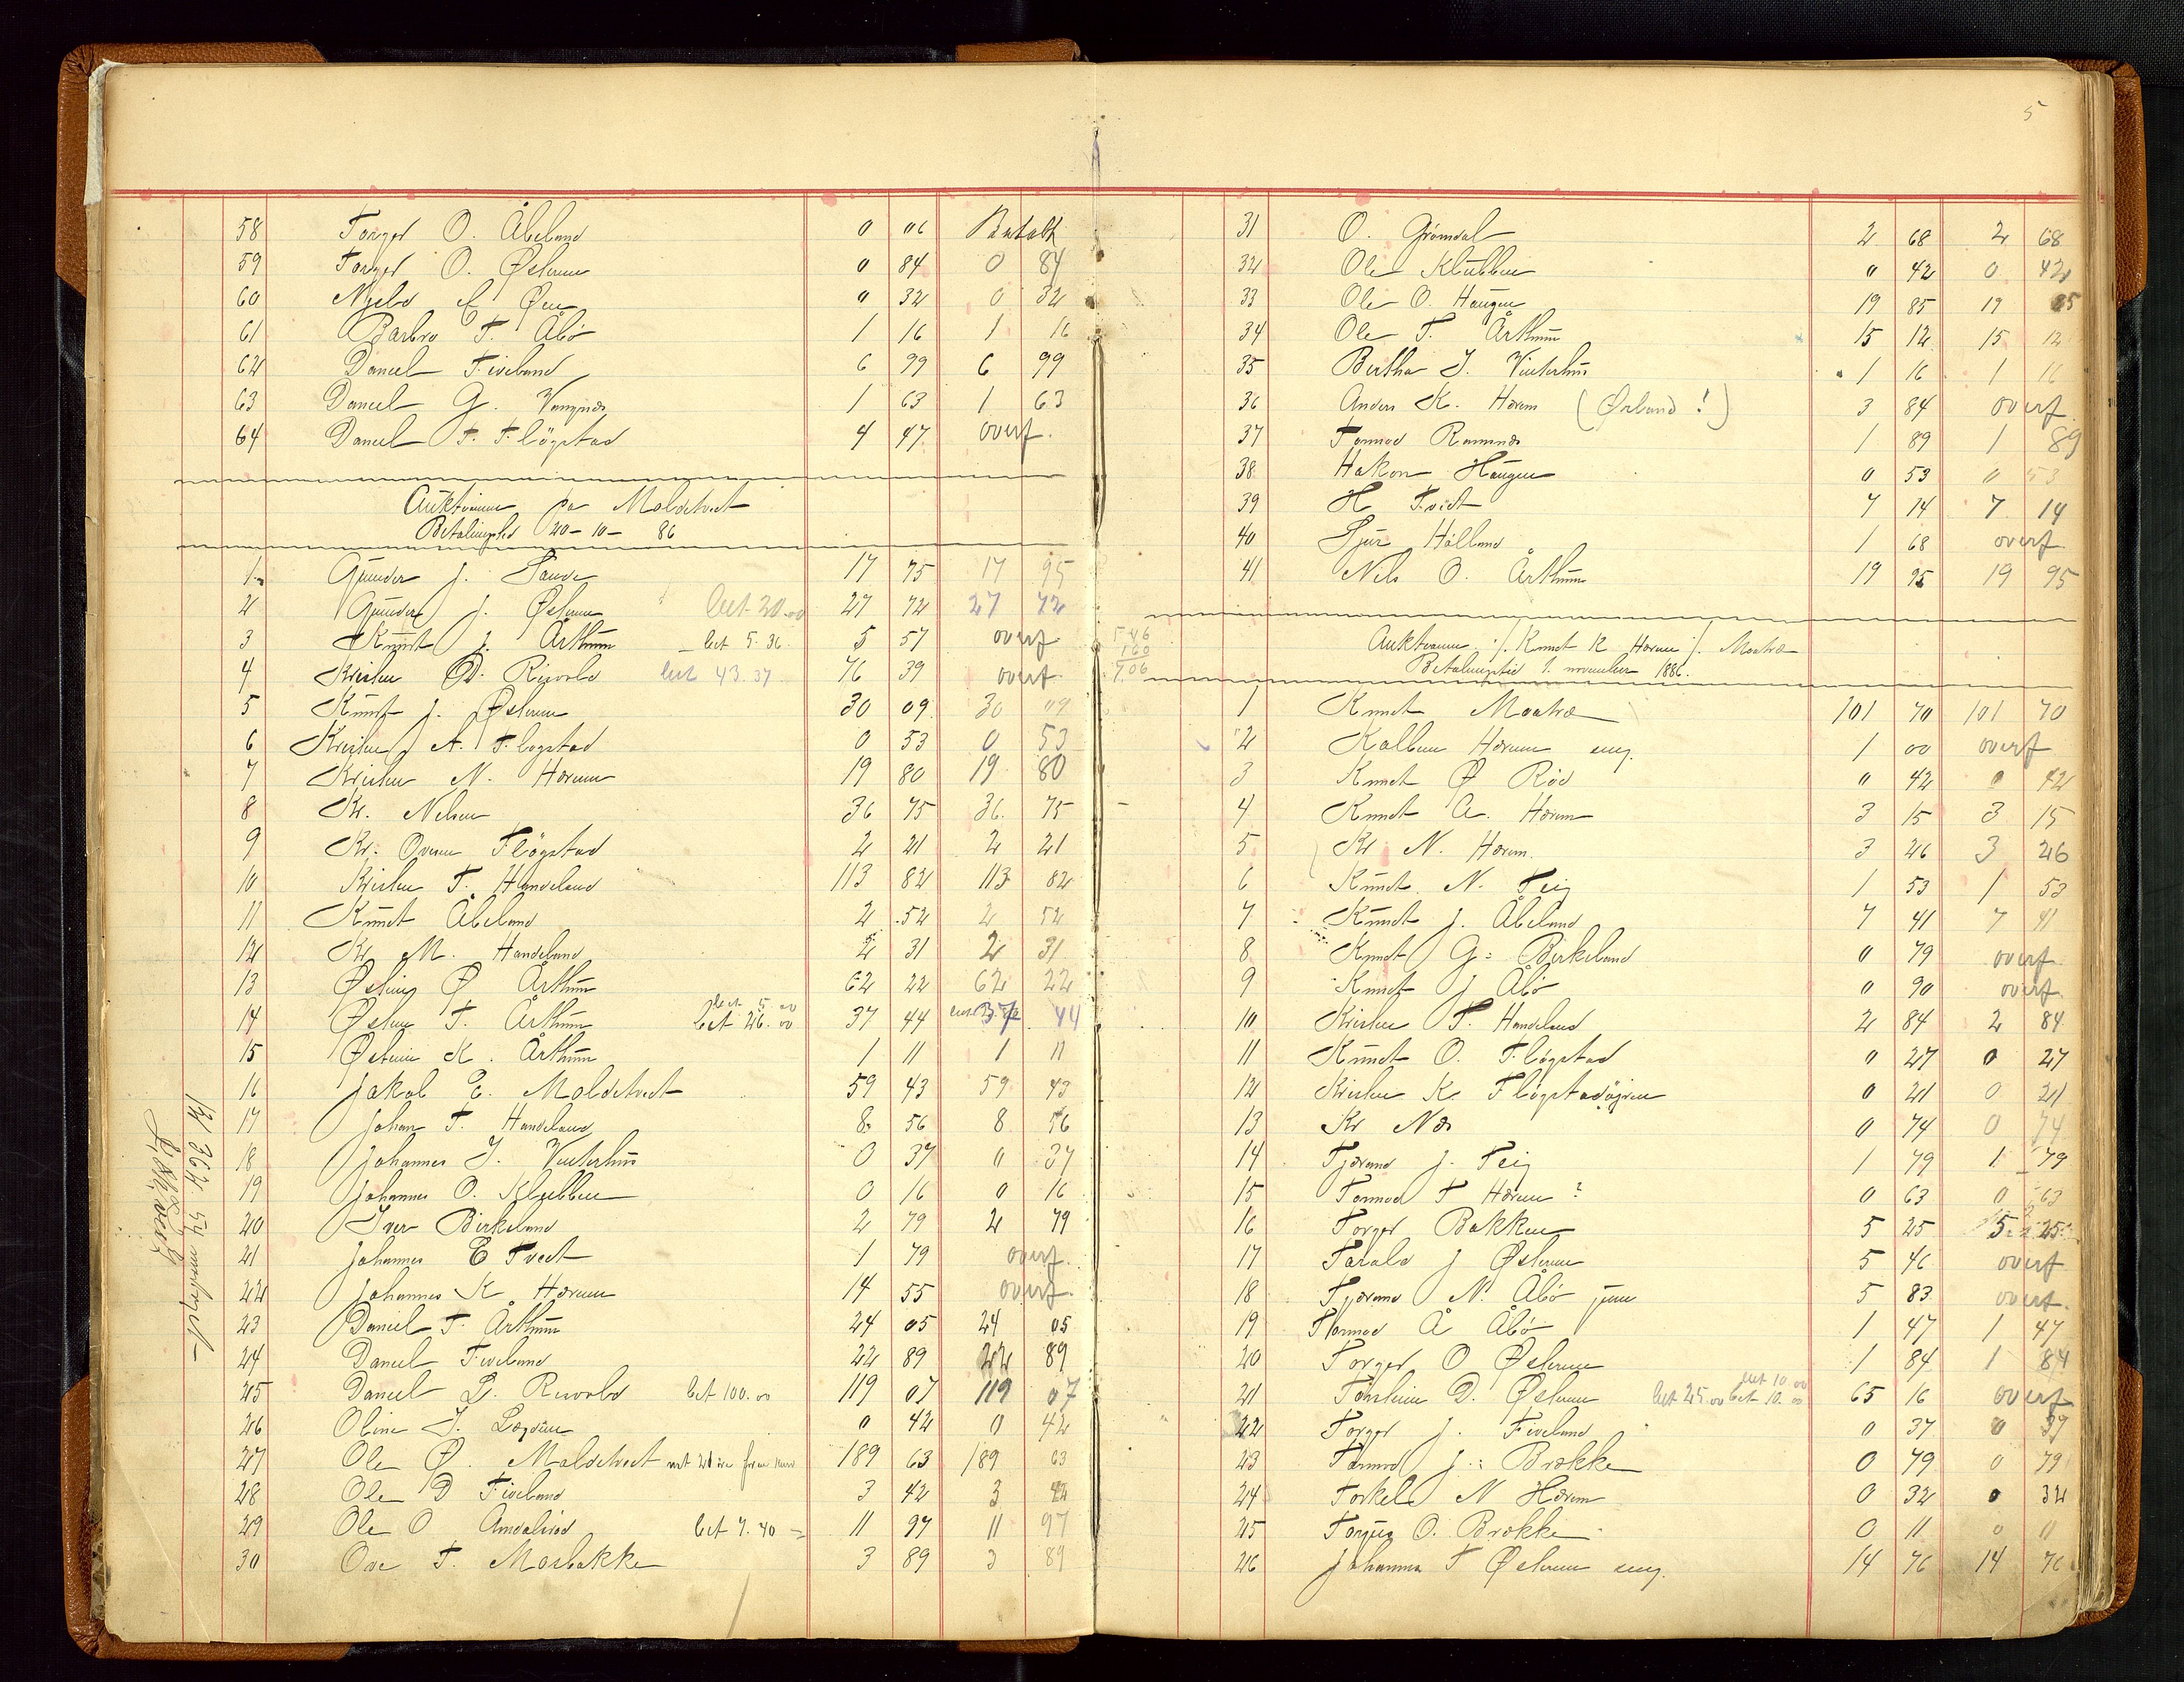 58 Torger O. Åbeland 0 06 Betalt
59 Torger O. Østerun 0 84 0 84
60 Njeld E Øen 0 32 0 32
61 Barbro T. Åbö 1 16 1 16
62 Daniel Fiveland 6 99 6 99
63 Daniel G. Vangsnes 1 63 1 63
64 Daniel T. Flögstad 4 47 overf.
Auktionen pa Moldetvedt
Betalingstid 20-10-86
1 Gunder J. Sande 17 95 17 95
2 Gunder J. Østerun bet 20.00 27 72 27 72
3 Knudt J. Århuun bet 5.36 5 57 overf
4 Kristen D. Risvold bet 43.37 76 39 overf.
5 Knudt J. Østerun 30 09 30 09
6 Kristen A. Flogstad 0 53 0 53
7 Kristen N. Horum 19 80 19 80
8 Kr. Nelsen 36 75 36. 75
9 Kr. Ovrum Flögstad 2 21 2 21
10 Kristen T. Handeland 113 82 113 82
11 Knudt Åbeland 2 52 2 52
12 Kr M. Handeland 2 31 2 31
13 Østein Ø Århuun 62 22 62 22
bet 5.00
14 Østen T. Århuun bet 26.00 37 44 37 44
15 Østein K. Århuun 1 11 1 11
16 Jakob E. Moldetvedt 59 43 59 43
17 Johan T. Handeland 8 56 8 56
18 Johannes J. Vinterhus 0 37 0 37
19 Johannes O. Klubben 0 16 0 16
20 Iver Birkeland 2 79 2 79
21 Johannes E Tvedt 1 79 overf.
22 Johannes K. Horum 14 55 overf.
23 Daniel T. Århuun 24 05 24 05
24 Daniel Fiveland 22 89 22 89
25 Daniel L. Risvold bet 100.00 119 07 119 07
26 Oline J. 0 42 0 42
27 Ole Ø. Moldetvedt 189 63 189 63
28 Ole D Fiveland 3 42 3 42
29 Ole O Amdalsrød bet 7.40 11 97 11 97
30 Ove T. Mosbakke 3 89 3 89
5
31 O. Grimdal 2 68 2 68
32 Ole Klubben 0 42 0 42
33 Ole O. Haugen 19 85 19 85
34 Ole T. Århuun 15 12 15 12
35 Bertha J. Vinterhus 1 16 1 16
36 Anders K. Horem (Ørland!) 3 84 overf.
37 Tormod Ramsnes 1 89 1 89
38 Hakon Haugen 0 53 0 53
39 H Tvedt 7 14 7 14
40 Sjur Hålland 1 68 overf
41 Nels O. Århuun 19 95 19 95
5 46
1 60
7.06
Auktionen ./. Knudt K Horum ./. Maatræ
Betalingstid 1. november 1886.
1 Knudt Maatræ 101 70 101 70
2 Kolben Horum ung. 1 00 overf
3 Knudt Ø Röd 0 42 0 42
4 Knudt A. Horem 3 15 3 15
5 Kr N. Horem. 3 26 3 26
6 Knudt N. Teig 1 53 1 53
7 Knudt J. Åbeland 7 41 7 41
8 Knudt G: Birkeland 0 79 overf.
9 Knudt J Åbö 0 90 overf.
10 Kristen T. Handeland 2 84 2 84
11 Knudt O. Flögstad 0 27 0 27
12 Kristen K. Flögstadøjren 0 21 0 21
13 Kr Næs 0 74 0 74
14 Tjerand J. Teig 1 79 1 79
15 Tormod T Horum ? 0 63 0 63
16 Torger Bakken 5 25 5 25
17 Tarald J Østerun 5 46 overf
18 Tjerand N. Åbö jun 5 83 overf.
19 Tormod Å Åbö 1 47 1 47
20 Torger O Østerun 1 84 1 84
bet 10.00
21 Torstein D. Østerun bet 25.00 bet 10.00 65 16 overf
22 Torger J. Fiveland 0 37 0 37
23 Tormod J. Brokke 0 79 0 79
24 Torkel N Horem 0 32 0 32
25 Torjus O. Brokke 0 11 0 11
26 Johannes T Østerun ung. 14 76 14 76